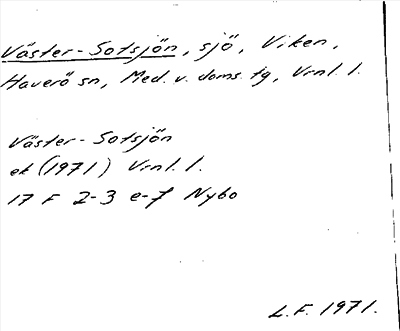 Väster-Sotsjön, sjö, Viken,
Haverö sn, Med. v. doms. tg, Vrnl. l.
Väster-Sotsjön
ek (1971) Vrnl. l.
17 F 2-3 e-f Nybo
L.F. 1971.